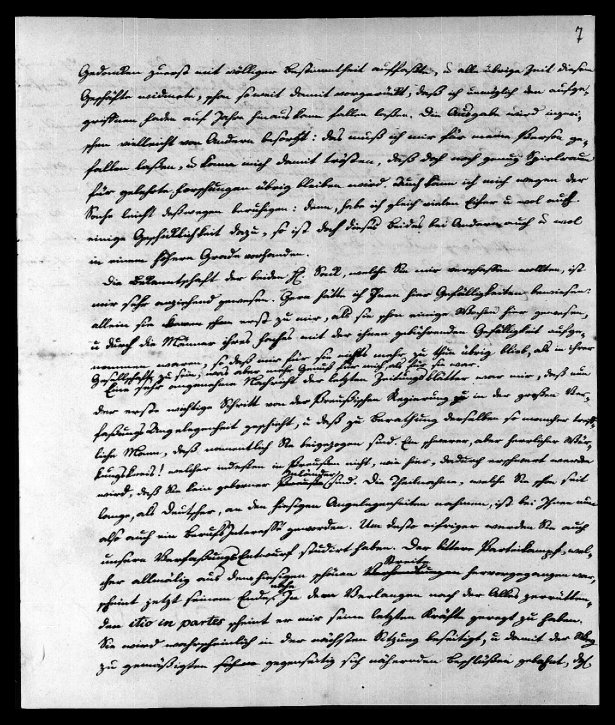 7
Gedanken zuerst mit völliger Bestimmtheit auffaßte, u alle übrige Zeit diesem
Geschäfte widmete, schon so weit damit vorgerückt, daß ich unmöglich den aufge-
griffnen Faden auf Jahre hinaus kann fallen lassen. Die Ausgabe wird inzwi-
schen vielleicht von Andern besorgt: das muß ich mir für meine Person ge-
fallen lassen, u kann mich damit trösten, daß doch noch genug Spielraum
für gelehrte Forschungen übrig bleiben wird. Auch kann ich mich wegen der
Sache leicht deßwegen beruhigen: denn, habe ich gleich vielen Eifer u wol auch
einige Geschicklichkeit dazu, so ist doch dieses Beides bei Andern auch u wol
in einem höhern Grade vorhanden.
Die Bekanntschaft der beiden H. , welche Sie mir verschaffen wollten, ist
mir sehr anziehend gewesen. Gern hätte ich Ihnen hier Gefälligkeiten bewiesen:
allein sie kamen schon erst zu mir, als sie schon einige Wochen hier gewesen,
u durch die Männer ihres Faches mit der ihnen gebührenden Gefälligkeit aufge-
nommen waren, so daß mir für sie nichts mehr zu thun übrig blieb, als in ihrer
Gesellschaft zu sein, was aber mehr Genuß für mich als für sie war.
Eine sehr angenehme Nachricht der letzten Zeitungsblätter war mir, daß nun
der erste wichtige Schritt von der Preussischen Regierung in der großen Ver-
fassungs Angelegenheit geschieht, u daß zu Berathung derselben so mancher treff-
liche Mann, daß namentlich Sie beigezogen sind. Ein schwerer, aber herrlicher Wür-
kungskreis! welcher indessen in Preussen nicht, wie hier, dadurch erschwert werden
wird, daß Sie kein geborner sind. Die Theilnahme, welche Sie schon seit
lange, als Deutscher, an den hiesigen Angelegenheiten nahmen, ist bei Ihnen nun
also auch ein Berufs Interesse geworden. Um desto eifriger werden Sie auch
unsern Verfassungs Entwurf studirt haben. Der bittere Parteikampf, wel-
cher allmälig aus dem hiesigen schönen hervorgegangen war,
scheint jetzt seinem Ende nahe. In dem Verlangen nach der Alles zerrütten-
den itio in partes scheint er mir seine letzten Kräfte geregt zu haben.
Sie wird wahrscheinlich in der nächsten Sitzung beseitigt, u damit der Weg
zu gemäßigten schon gegenseitig sich nähernden Beschlüssen gebahnt, daß